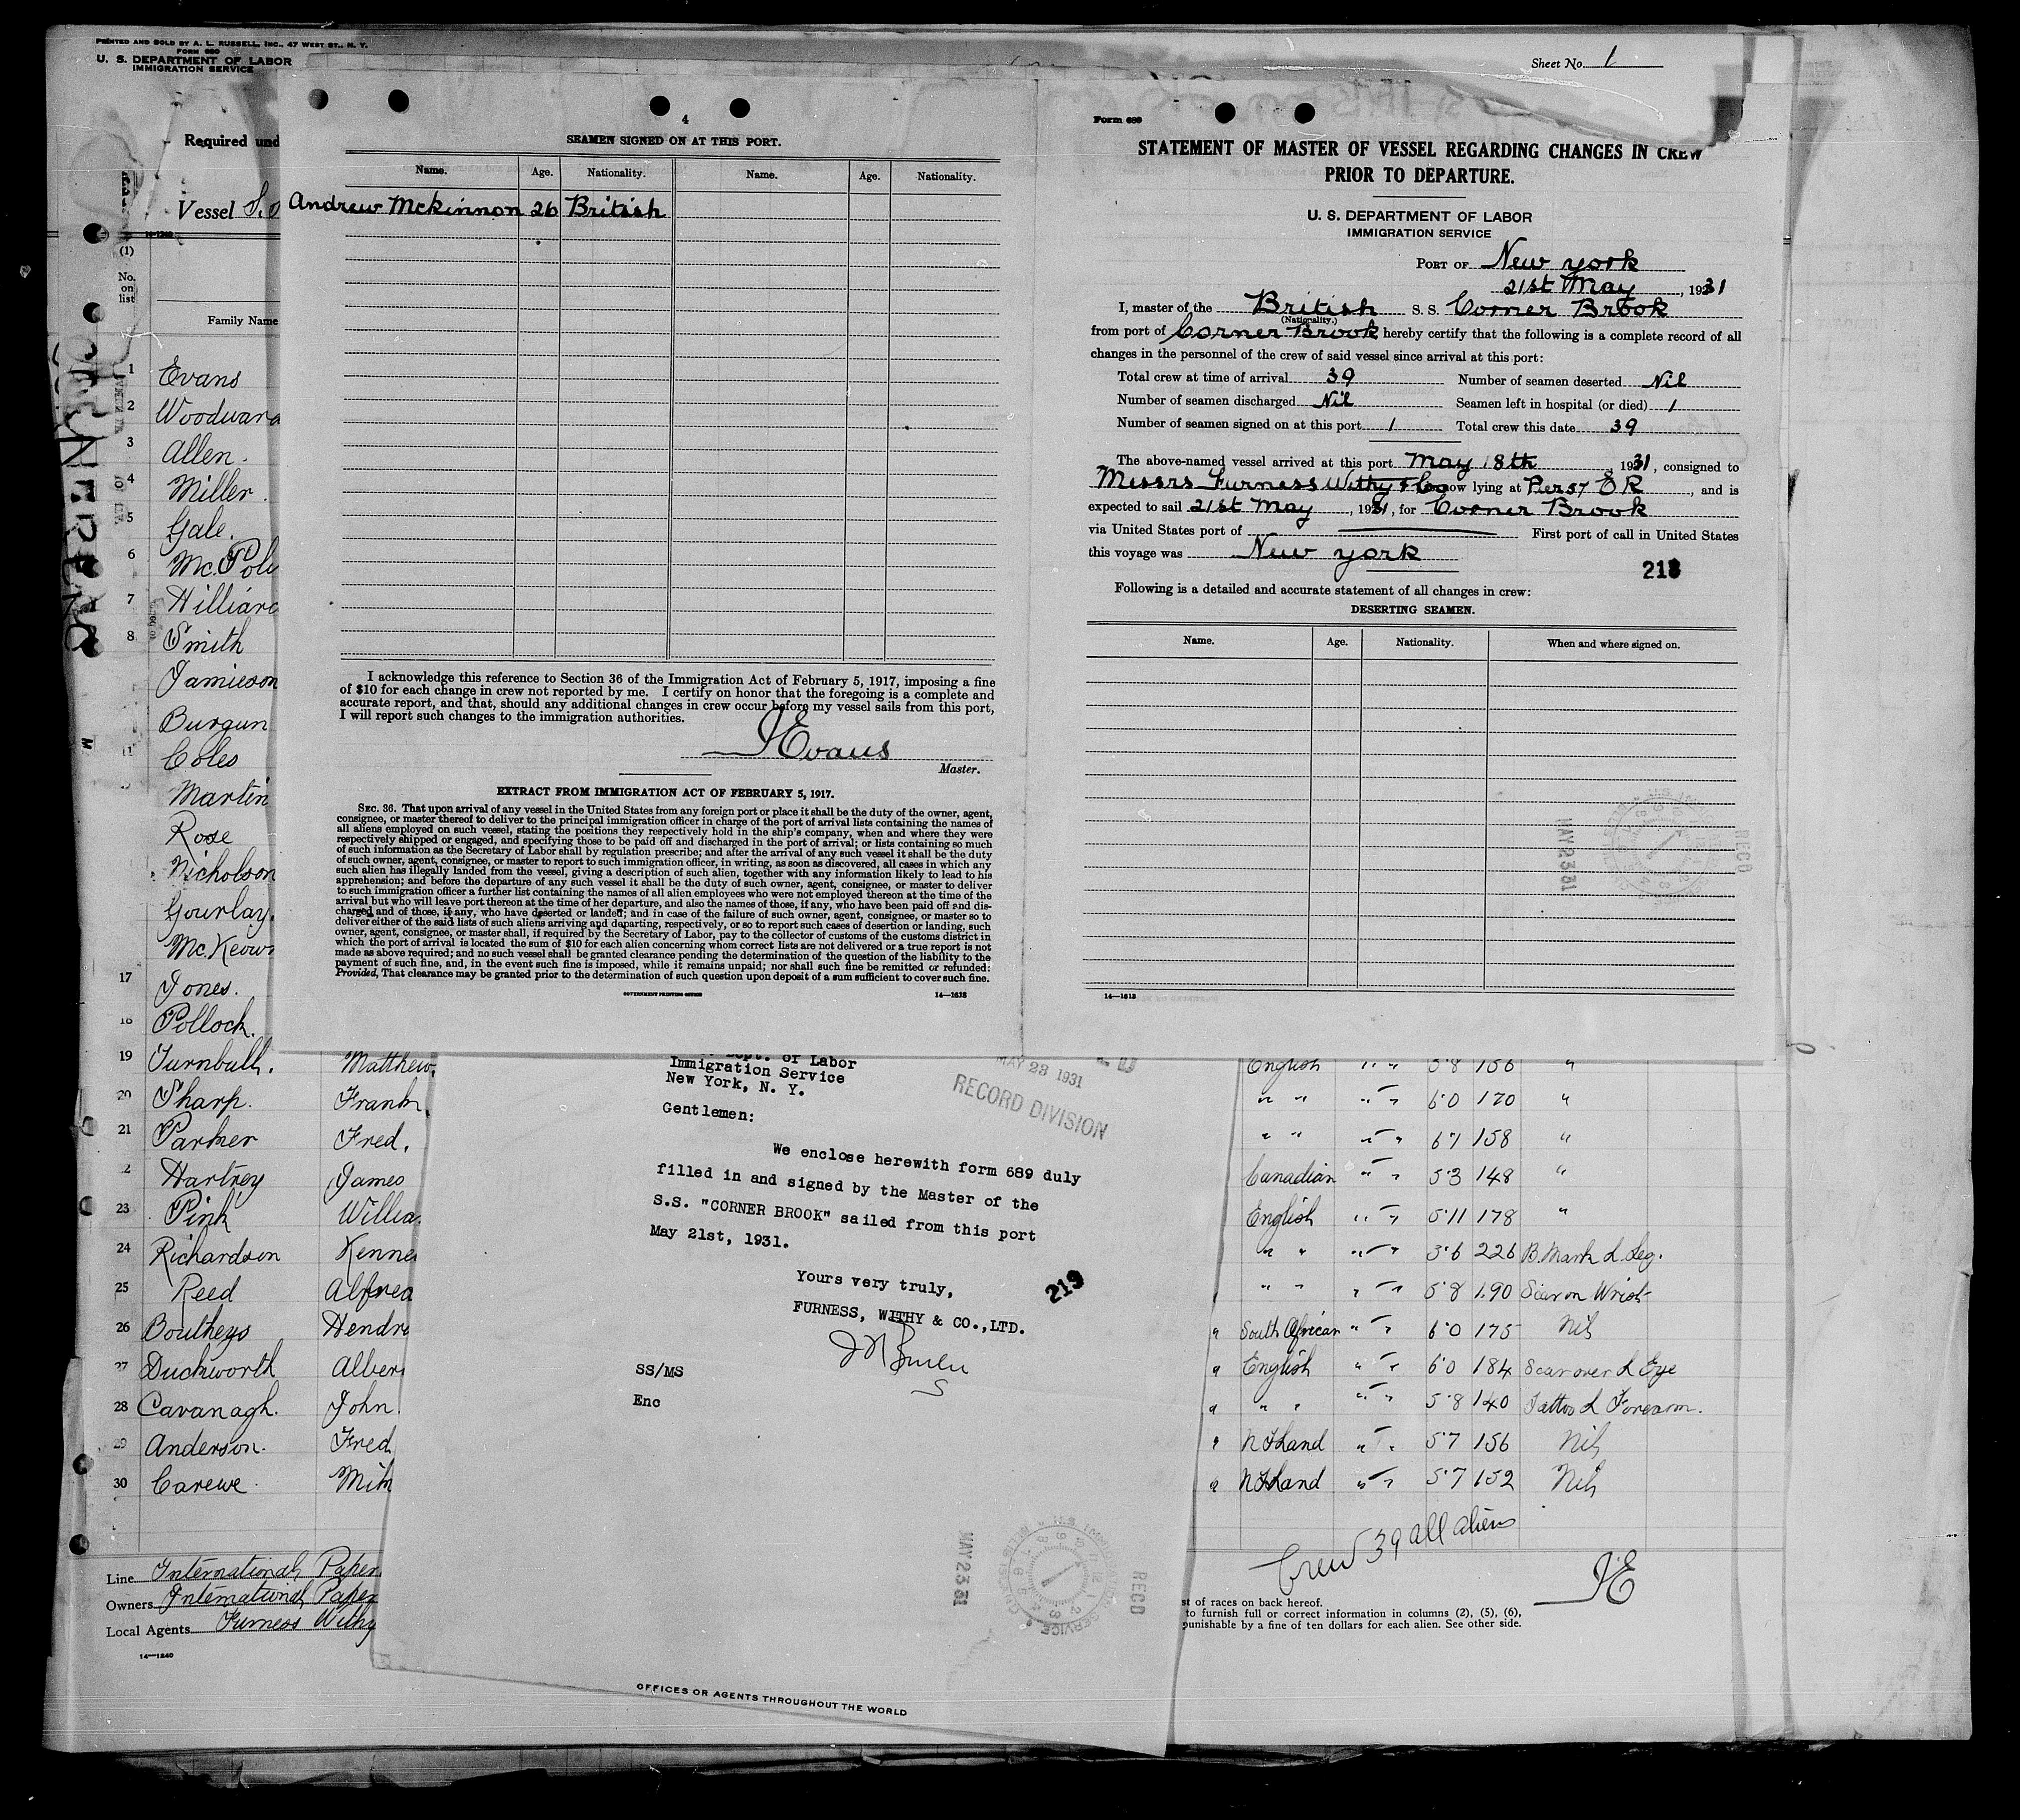 PRINTED AND SOLD BY A. L. RUSSELL, INC., 47 WEST ST., N. Y.
FORM 680
U. S. DEPARTMENT OF LABOR
IMMIGRATION SERVICE
Sheet No. 1
Required und
Vessel S.S
14-1240
(1)
No. on list
Family Name
1 Evans
2 Woodward
3 Allen.
4 Miller.
5 Gale.
6
7 Hilliard
8 Smith
Jamieson
Burgun
11 Coles
Martin
Rose
Nicholson
Gourlay.
Mc.Keown
17 Jones.
18 Pollock.
19 Turnbull. Matthew.
20 Sharp. Frank.
21 Parker Fred.
22 Hartrey James
23 Pink Willia
24 Richardson Kenne
25 Reed Alfred
26 Boutheys Hendri
27 Duckworth Alber
28 Cavanagh. John.
29 Anderson. Fred
30 Carewe. Mik
Line International Paper
Owners International Paper
Local Agents Furness Withy
14-1240
4
SEAMEN SIGNED ON AT THIS PORT.
Name. Age. Nationality. Name. Age. Nationality.
Andrew McKinnon 26 British
I acknowledge this reference to Section 36 of the Immigration Act of February 5, 1917, imposing a fine
of $10 for each change in crew not reported by me. I certify on honor that the foregoing is a complete and
accurate report, and that, should any additional changes in crew occur before my vessel sails from this port,
I will report such changes to the immigration authorities.
J Evans
Master.
EXTRACT FROM IMMIGRATION ACT OF FEBRUARY 5, 1917.
SEC. 36. That upon arrival of any vessel in the United States from any foreign port or place it shall be the duty of the owner, agent,
consignee, or master thereof to deliver to the principal immigration officer in charge of the port of arrival lists containing the names of
all aliens employed on such vessel, stating the positions they respectively hold in the ship's company, when and where they were
respectively shipped or engaged, and specifying those to be paid off and discharged in the port of arrival; or lists containing so much
of such information as the Secretary of Labor shall by regulation prescribe; and after the arrival of any such vessel it shall be the duty
of such owner, agent, consignee, or master to report to such immigration officer, in writing, as soon as discovered, all cases in which any
such alien has illegally landed from the vessel, giving a description of such alien, together with any information likely to lead to his
apprehension; and before the departure of any such vessel it shall be the duty of such owner, agent, consignee, or master to deliver
to such immigration officer a further list containing the names of all alien employees who were not employed thereon at the time of the
arrival but who will leave port thereon at the time of her departure, and also the names of those, if any, who have been paid off and dis-
charged, and of those, if any, who have deserted or landed; and in case of the failure of such owner, agent, consignee, or master so to
deliver either of the said lists of such aliens arriving and departing, respectively, or so to report such cases of desertion or landing, such
owner, agent, consignee, or master shall, if required by the Secretary of Labor, pay to the collector of customs of the customs district in
which the port of arrival is located the sum of $10 for each alien concerning whom correct lists are not delivered or a true report is not
made as above required; and no such vessel shall be granted clearance pending the determination of the question of the liability to the
payment of such fine, and, in the event such fine is imposed, while it remains unpaid; nor shall such fine be remitted or refunded:
Provided, That clearance may be granted prior to the determination of such question upon deposit of a sum sufficient to cover such fine.
GOVERNMENT PRINTING OFFICE 14—1613
Form 689
STATEMENT OF MASTER OF VESSEL REGARDING CHANGES IN CREW
PRIOR TO DEPARTURE.
U. S. DEPARTMENT OF LABOR
IMMIGRATION SERVICE
PORT OF New York
21st May, 1931
I, master of the British S. S. Corner Brook
(Nationality.)
from port of Corner Brook hereby certify that the following is a complete record of all
changes in the personnel of the crew of said vessel since arrival at this port:
Total crew at time of arrival 39 Number of seamen deserted Nil
Number of seamen discharged Nil Seamen left in hospital (or died) 1
Number of seamen signed on at this port 1 Total crew this date 39
The above-named vessel arrived at this port May 18th, 1931, consigned to
Messrs Furness Withy & Co now lying at Pier 37 E R, and is
expected to sail 21st May, 1931, for Corner Brook
via United States port of First port of call in United States
this voyage was New York
218
Following is a detailed and accurate statement of all changes in crew:
DESERTING SEAMEN.
Name. Age. Nationality. When and where signed on.
MAY 23 31
RECD
14—1613
Dept. of Labor
Immigration Service
New York, N. Y.
MAY 23 1931
RECORD DIVISION
Gentlemen:
We enclose herewith form 689 duly
filled in and signed by the Master of the
S.S. "CORNER BROOK" sailed from this port
May 21st, 1931.
Yours very truly,
FURNESS, WITHY & CO.,LTD.
219
SS/MS
Enc
MAY 23 31
RECD
OFFICES OR AGENTS THROUGHOUT THE WORLD
English " " 5'8 156 "
" " " " 6'0 170 "
" " " " 6'1 158 "
Canadian " " 5'3 148 "
English " " 5'11 178 "
" " " " 5'6 226 B. Mark L Leg.
" " " " 5'8 190 Scar on Wrist
" South African " " 6'0 175 Nil
" English " " 6'0 184 Scar over L Eye
" " " " " 5'8 140 Tattoo L Forearm.
" NFLand " " 5'7 156 Nil
" NFLand " " 5'7 152 Nil
Crew 39 all aliens
JE
st of races on back hereof.
to furnish full or correct information in columns (2), (5), (6),
punishable by a fine of ten dollars for each alien. See other side.